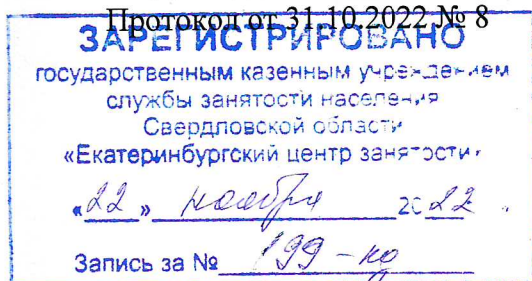 Протокол от 31.10.2022 № 8
ЗАРЕГИСТРИРОВАНО
государственным казенным учреждением
службы занятости населения
Свердловской области
«Екатеринбургский центр занятости»
«22» ноября 2022 .
Запись за № 199-кд